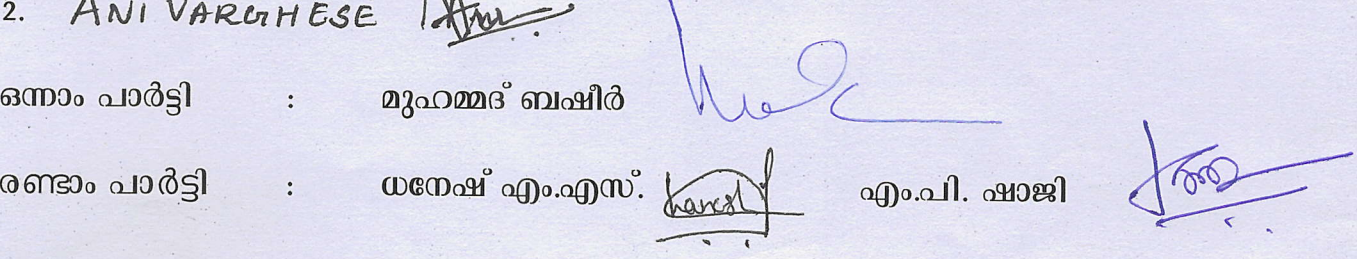 2. ANI VARGHESE
ഒന്നാം പാർട്ടി : മുഹമ്മദ് ബഷീർ
രണ്ടാം പാർട്ടി : ധനേഷ് എം.എസ്. എം.പി. ഷാജി